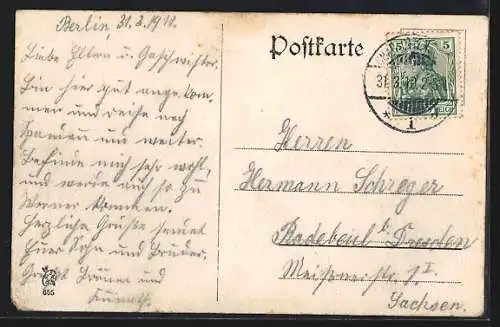 Berlin 31.3.1912.
Liebe Eltern u. Geschwister.
Bin hier gut angekom-
men und reise nach
Spandau um weiter.
Befinde mich sehr wohl,
und werde auch so zu
Werner kommen.
Herzliche Grüße sendet
Euer Sohn und Bruder.
Gruß und
655
Postkarte
5
31.3.12
* 1
Herren
Hermann Schreger
Radebeul b. Dresden
Meißnerstr. I
Sachsen.